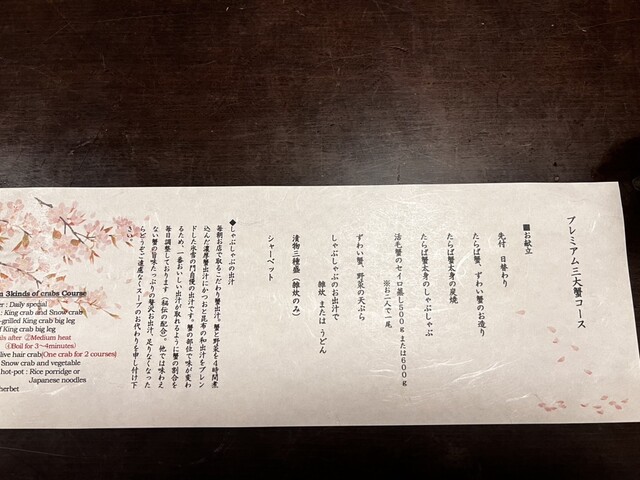 プレミアム三大蟹コース
■お献立
先付　日替わり
たらば蟹、ずわい蟹のお造り
たらば蟹太身の炭焼
たらば蟹太身のしゃぶしゃぶ
活毛蟹のセイロ蒸し500gまたは600g
※お二人で一尾
ずわい蟹、野菜の天ぷら
しゃぶしゃぶのお出汁で
雑炊 または うどん
漬物三種盛（雑炊のみ）
シャーベット
◆しゃぶしゃぶの出汁
毎朝お店で取るこだわり蟹出汁。蟹と野菜を4時間煮
込んだ濃厚蟹出汁にかつおと昆布の和出汁をブレン
ドした氷雪の門自慢の出汁です。蟹の部位で味が変わ
るため、一番おいしい出汁が取れるように蟹の割合を
毎日調整しております（秘伝の配合）。他では味わえ
ない蟹の旨味たっぷりの贅沢お出汁、足りなくなった
らどうぞご遠慮なくスープのお代わりを申し付け下
さい。
3kinds of crabs Course
: Daily special
: King crab and Snow crab
-grilled King crab big leg
f King crab big leg
after ②Medium heat
④Boil for 3~4minutes)
live hair crab(One crab for 2 courses)
Snow crab and vegetable
hot-pot : Rice porridge or
Japanese noodles
herbet